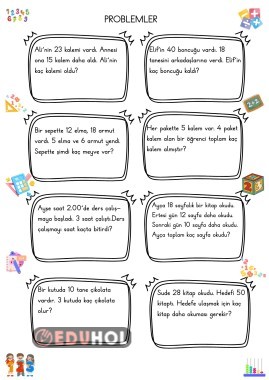 PROBLEMLER
Ali'nin 23 kalemi vardı. Annesi
ona 15 kalem daha aldı. Ali'nin
kaç kalemi oldu?
Elif'in 40 boncuğu vardı. 18
tanesini arkadaşlarına verdi. Elif'in
kaç boncuğu kaldı?
Bir sepette 12 elma, 18 armut
vardı. 5 elma ve 6 armut yendi.
Sepette şimdi kaç meyve var?
Her pakette 5 kalem var. 4 paket
kalem alan bir öğrenci toplam kaç
kalem almıştır?
Ayşe saat 2.00'de ders çalış-
maya başladı. 3 saat çalıştı.Ders
çalışmayı saat kaçta bitirdi?
Ayça 18 sayfalık bir kitap okudu.
Ertesi gün 12 sayfa daha okudu.
Sonraki gün 10 sayfa daha okudu.
Ayça toplam kaç sayfa okudu?
Bir kutuda 10 tane çikolata
vardır. 3 kutuda kaç çikolata
olur?
Sude 28 kitap okudu. Hedefi 50
kitaptı. Hedefe ulaşmak için kaç
kitap daha okuması gerekir?
EDUHOL